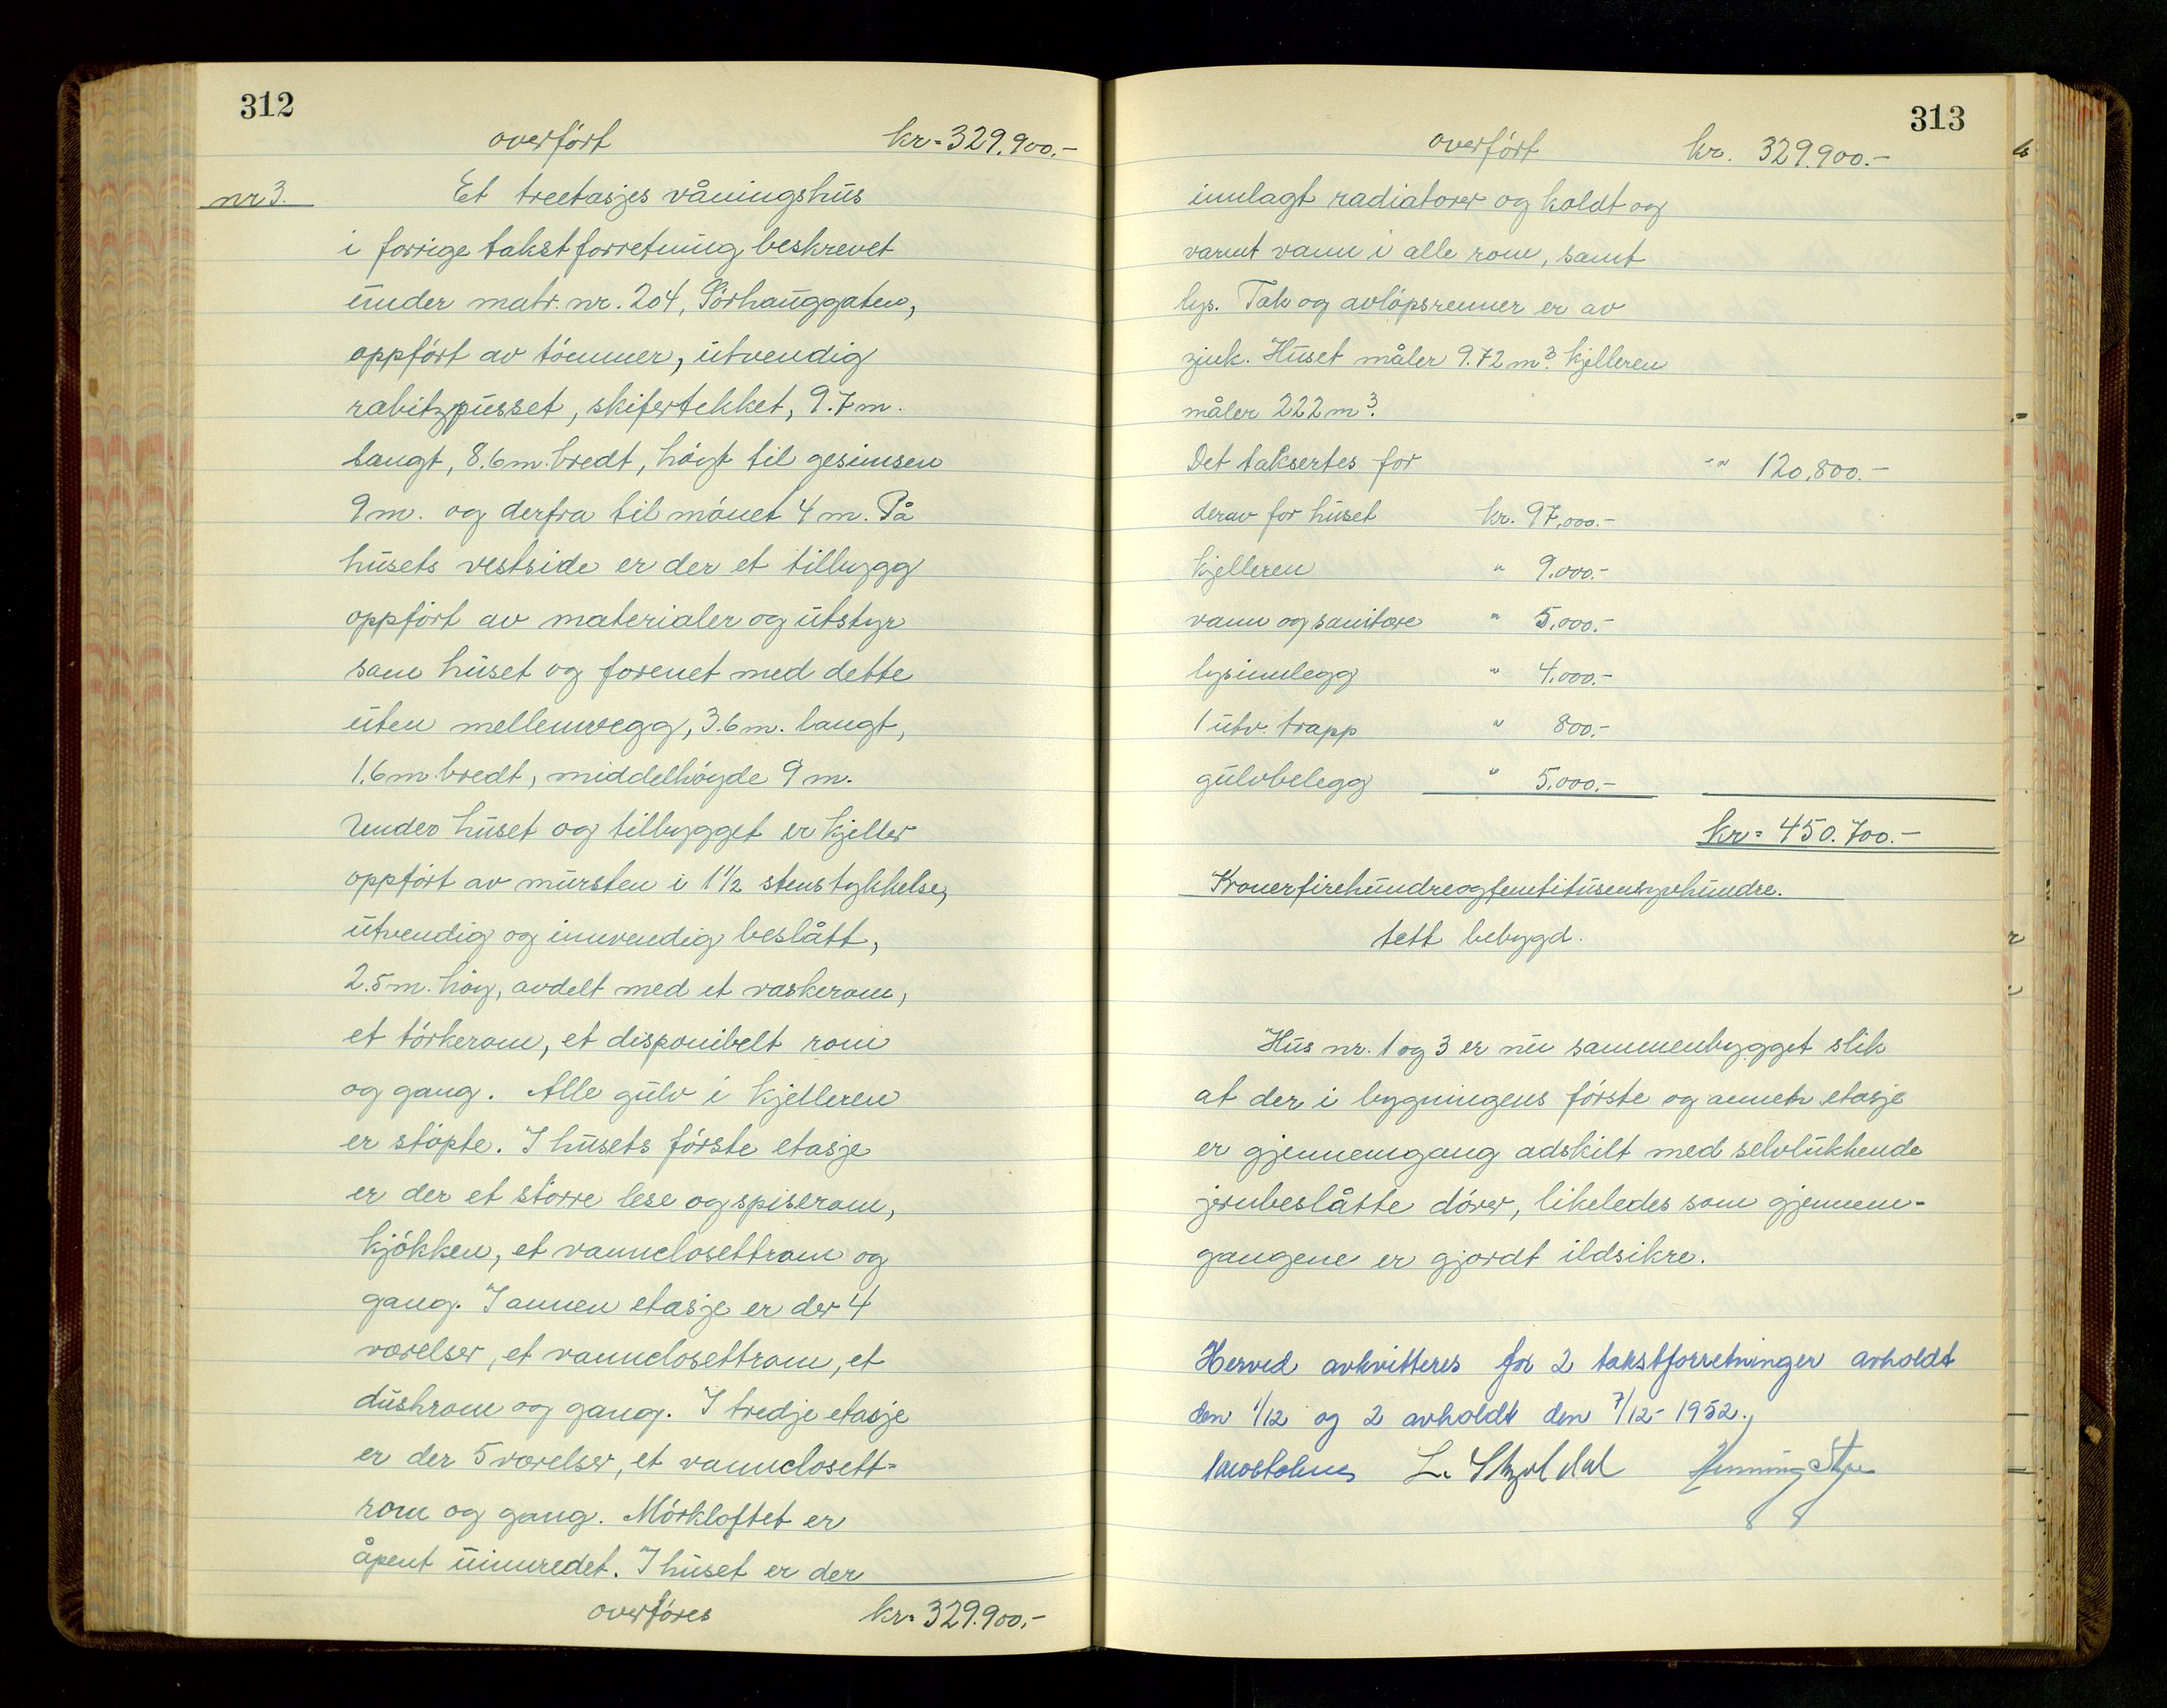 312
overført kr. 329.900.-
nr 3. Et treetasjes våningshus
i forrige takstforretning beskrevet
under matr. nr. 204, Sørhauggaten,
oppført av tømmer, utvendig
rabitzpusset, skifertekket, 9.7 m.
langt, 8.6 m. bredt, høigt til gesimsen
9 m. og derfra til mønet 4 m. På
husets vestside er der et tilbygg
oppført av materialer og utstyr
som huset og forenet med dette
uten mellemvegg, 3.6 m. langt,
1.6 m. bredt, middelhøyde 9 m.
Under huset og tilbygget er kjeller
oppført av mursten i 1 1/2 stens tykkelse,
utvendig og innvendig beslått,
2.5 m. høy, avdelt med et vaskerom,
et tørkerom, et disponibelt rom
og gang. Alle gulv i kjelleren
er støpte. I husets første etasje
er der et større lese og spiserom,
kjøkken, et vannclosettrom og
gang. I annen etasje er der 4
værelser, et vannclosettrom, et
dushrom og gang. I tredje etasje
er der 5 værelser, et vannclosett-
rom og gang. Mørkloftet er
åpent uinnredet. I huset er der
overføres kr. 329.900.-
313
overført kr. 329.900.-
innlagt radiatorer og koldt og
varmt vann i alle rom, samt
lys. Tak og avløpsrenner er av
zink. Huset måler 9.72 m³. Kjelleren
måler 222 m³.
Det taksertes for -"- 120,800.-
derav for huset kr. 97,000.-
kjelleren " 9.000.-
vann og sanitære " 5.000.-
lysinnlegg " 4.000.-
1 utv. trapp " 800.-
gulvbelegg " 5.000.-
kr. 450.700.-
Kronerfirehundreogfemtitusensyvhundre.
tett bebygd.
Hus nr. 1 og 3 er nu sammenbygget slik
at der i bygningens første og annen etasje
er gjennemgang adskilt med selvlukkende
jernbeslåtte dører, likeledes som gjennem-
gangene er gjordt ildsikre.
Herved avkvitteres for 2 takstforretninger avholdt
den 1/12 og 2 avholdt den 7/12 - 1952.
L. Skjoldal Henning